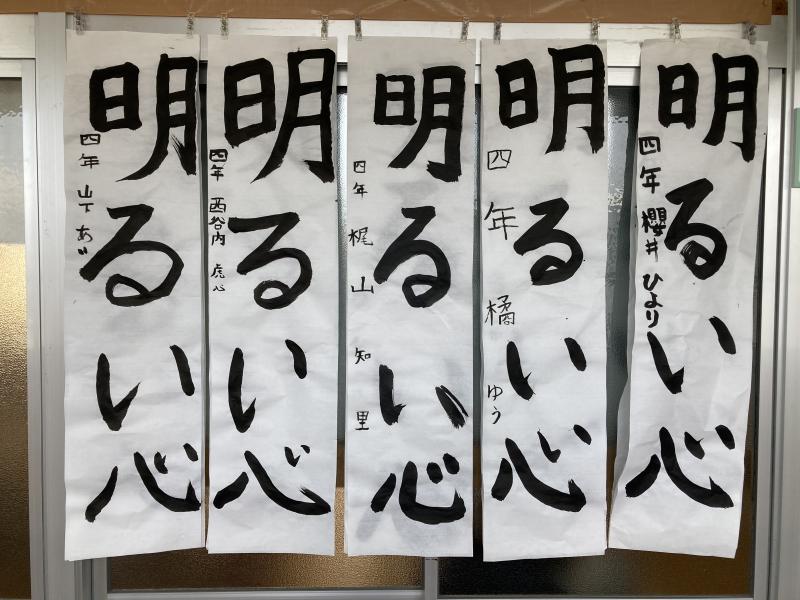 明るい心
四年 櫻井 ひより
明るい心
四年 橘 ゆう
明るい心
四年 梶山 知里
明るい心
四年 西谷内 虎心
明るい心
四年 山下